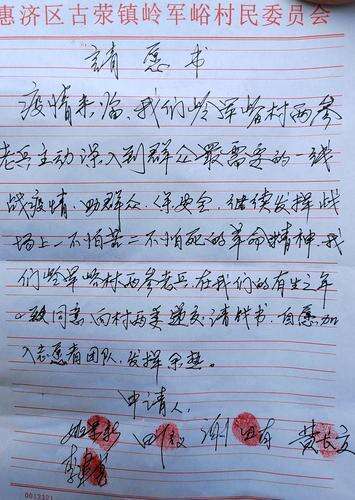 惠济区古荥镇岭军峪村民委员会
請愿书
疫情来临，我们岭军峪村两参
老兵主动深入到群众最需要的一线
战疫情，助群众，保安全，继续发挥战
场上一不怕苦二不怕死的革命精神，我
们岭军峪村两参老兵，在我们的有生之年
一致同意向村两委递交请战书，自愿加
入志愿者团队，发挥余热。
申请人，
黄长立
0012101